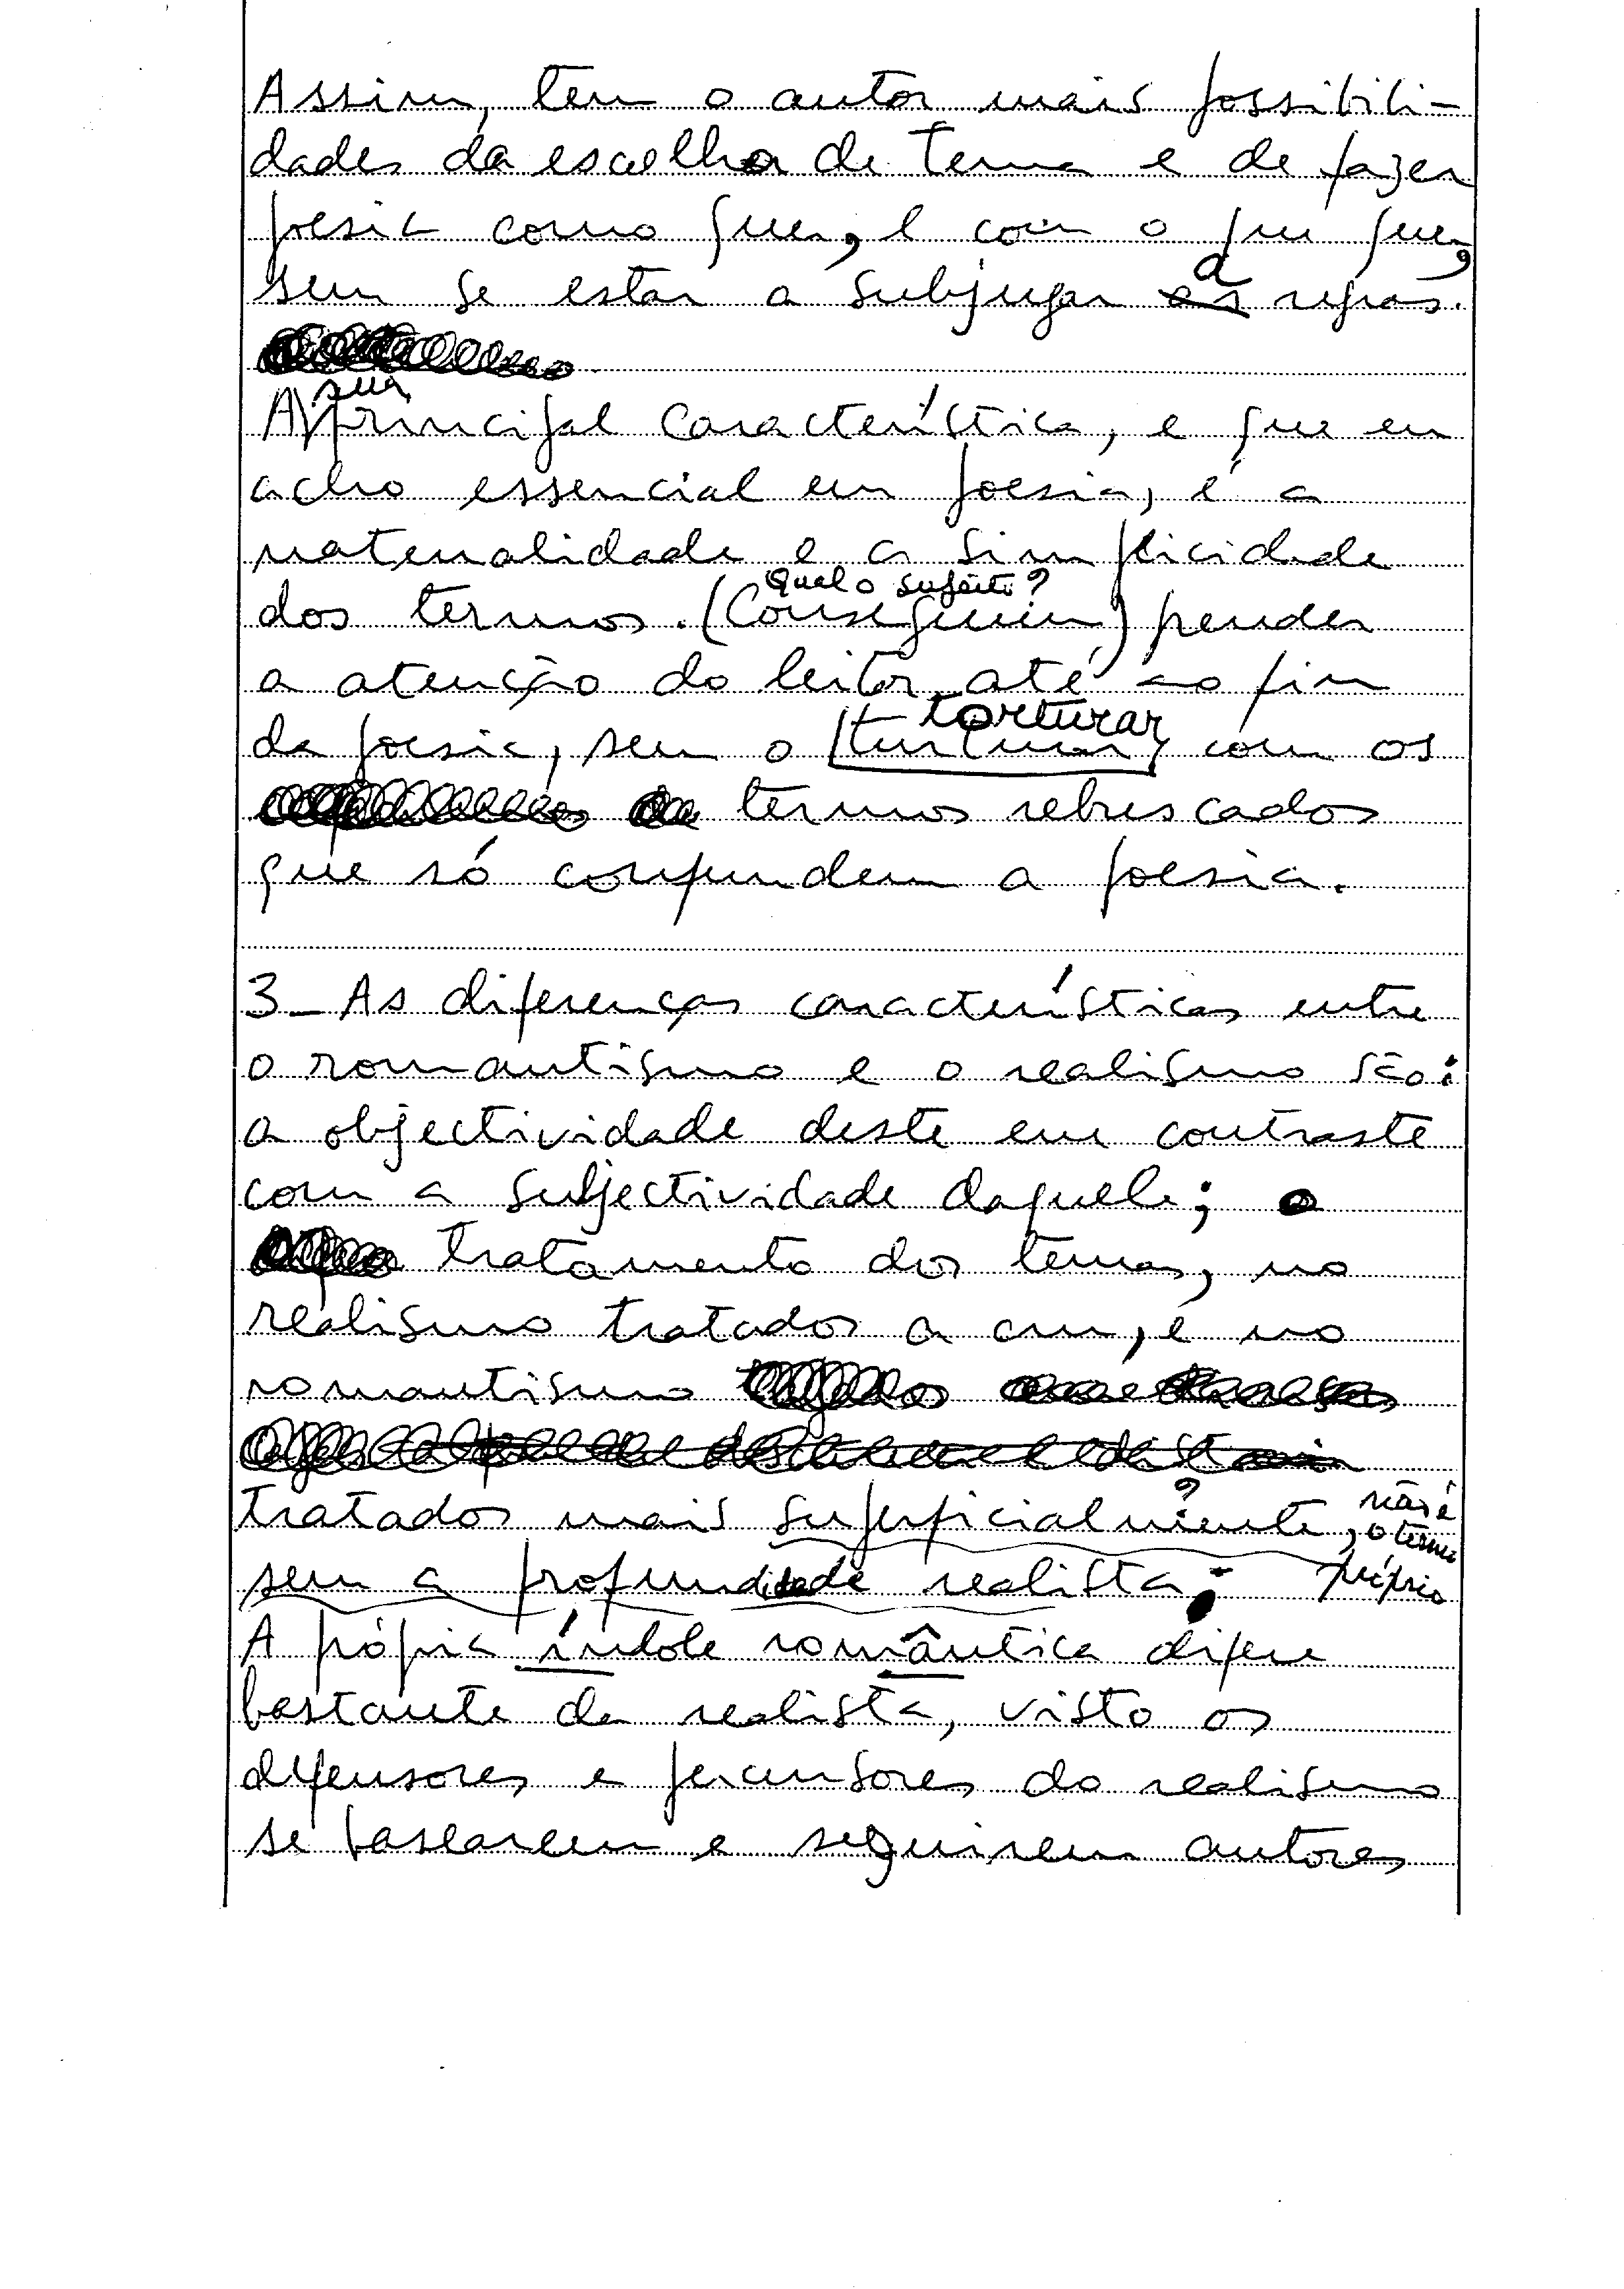 Assim, tem o autor mais possibili-
dades da escolha de tema e de fazer
poesia como quer, e com o que quer,
sem se estar a subjugar a regras.
A sua principal característica, e que eu
acho essencial em poesia, é a
naturalidade e a simplicidade
Qual o sujeito?
dos termos. (Conseguem) prender
a atenção do leitor até ao fim
torturar
da poesia, sem o turturar, com os
termos rebuscados
que só confundem a poesia.
3 - As diferenças características entre
o romantismo e o realismo são:
a objectividade deste em contraste
com a subjectividade daquele; o
tratamento dos temas, no
realismo tratados a cru, e no
romantismo
tratados mais superficialmente, não é
o termo
sem a profundidade realista. próprio
A própria índole romântica difere
bastante da realista, visto os
defensores e percursores do realismo
se basearem e seguirem autores